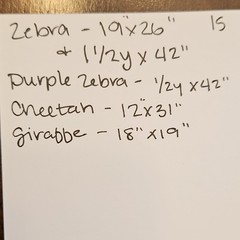 Zebra - 19"x26" 15
& 1 1/2y x 42"
Purple Zebra - 1/2y x 42"
Cheetah - 12"x31"
Giraffe - 18"x19"